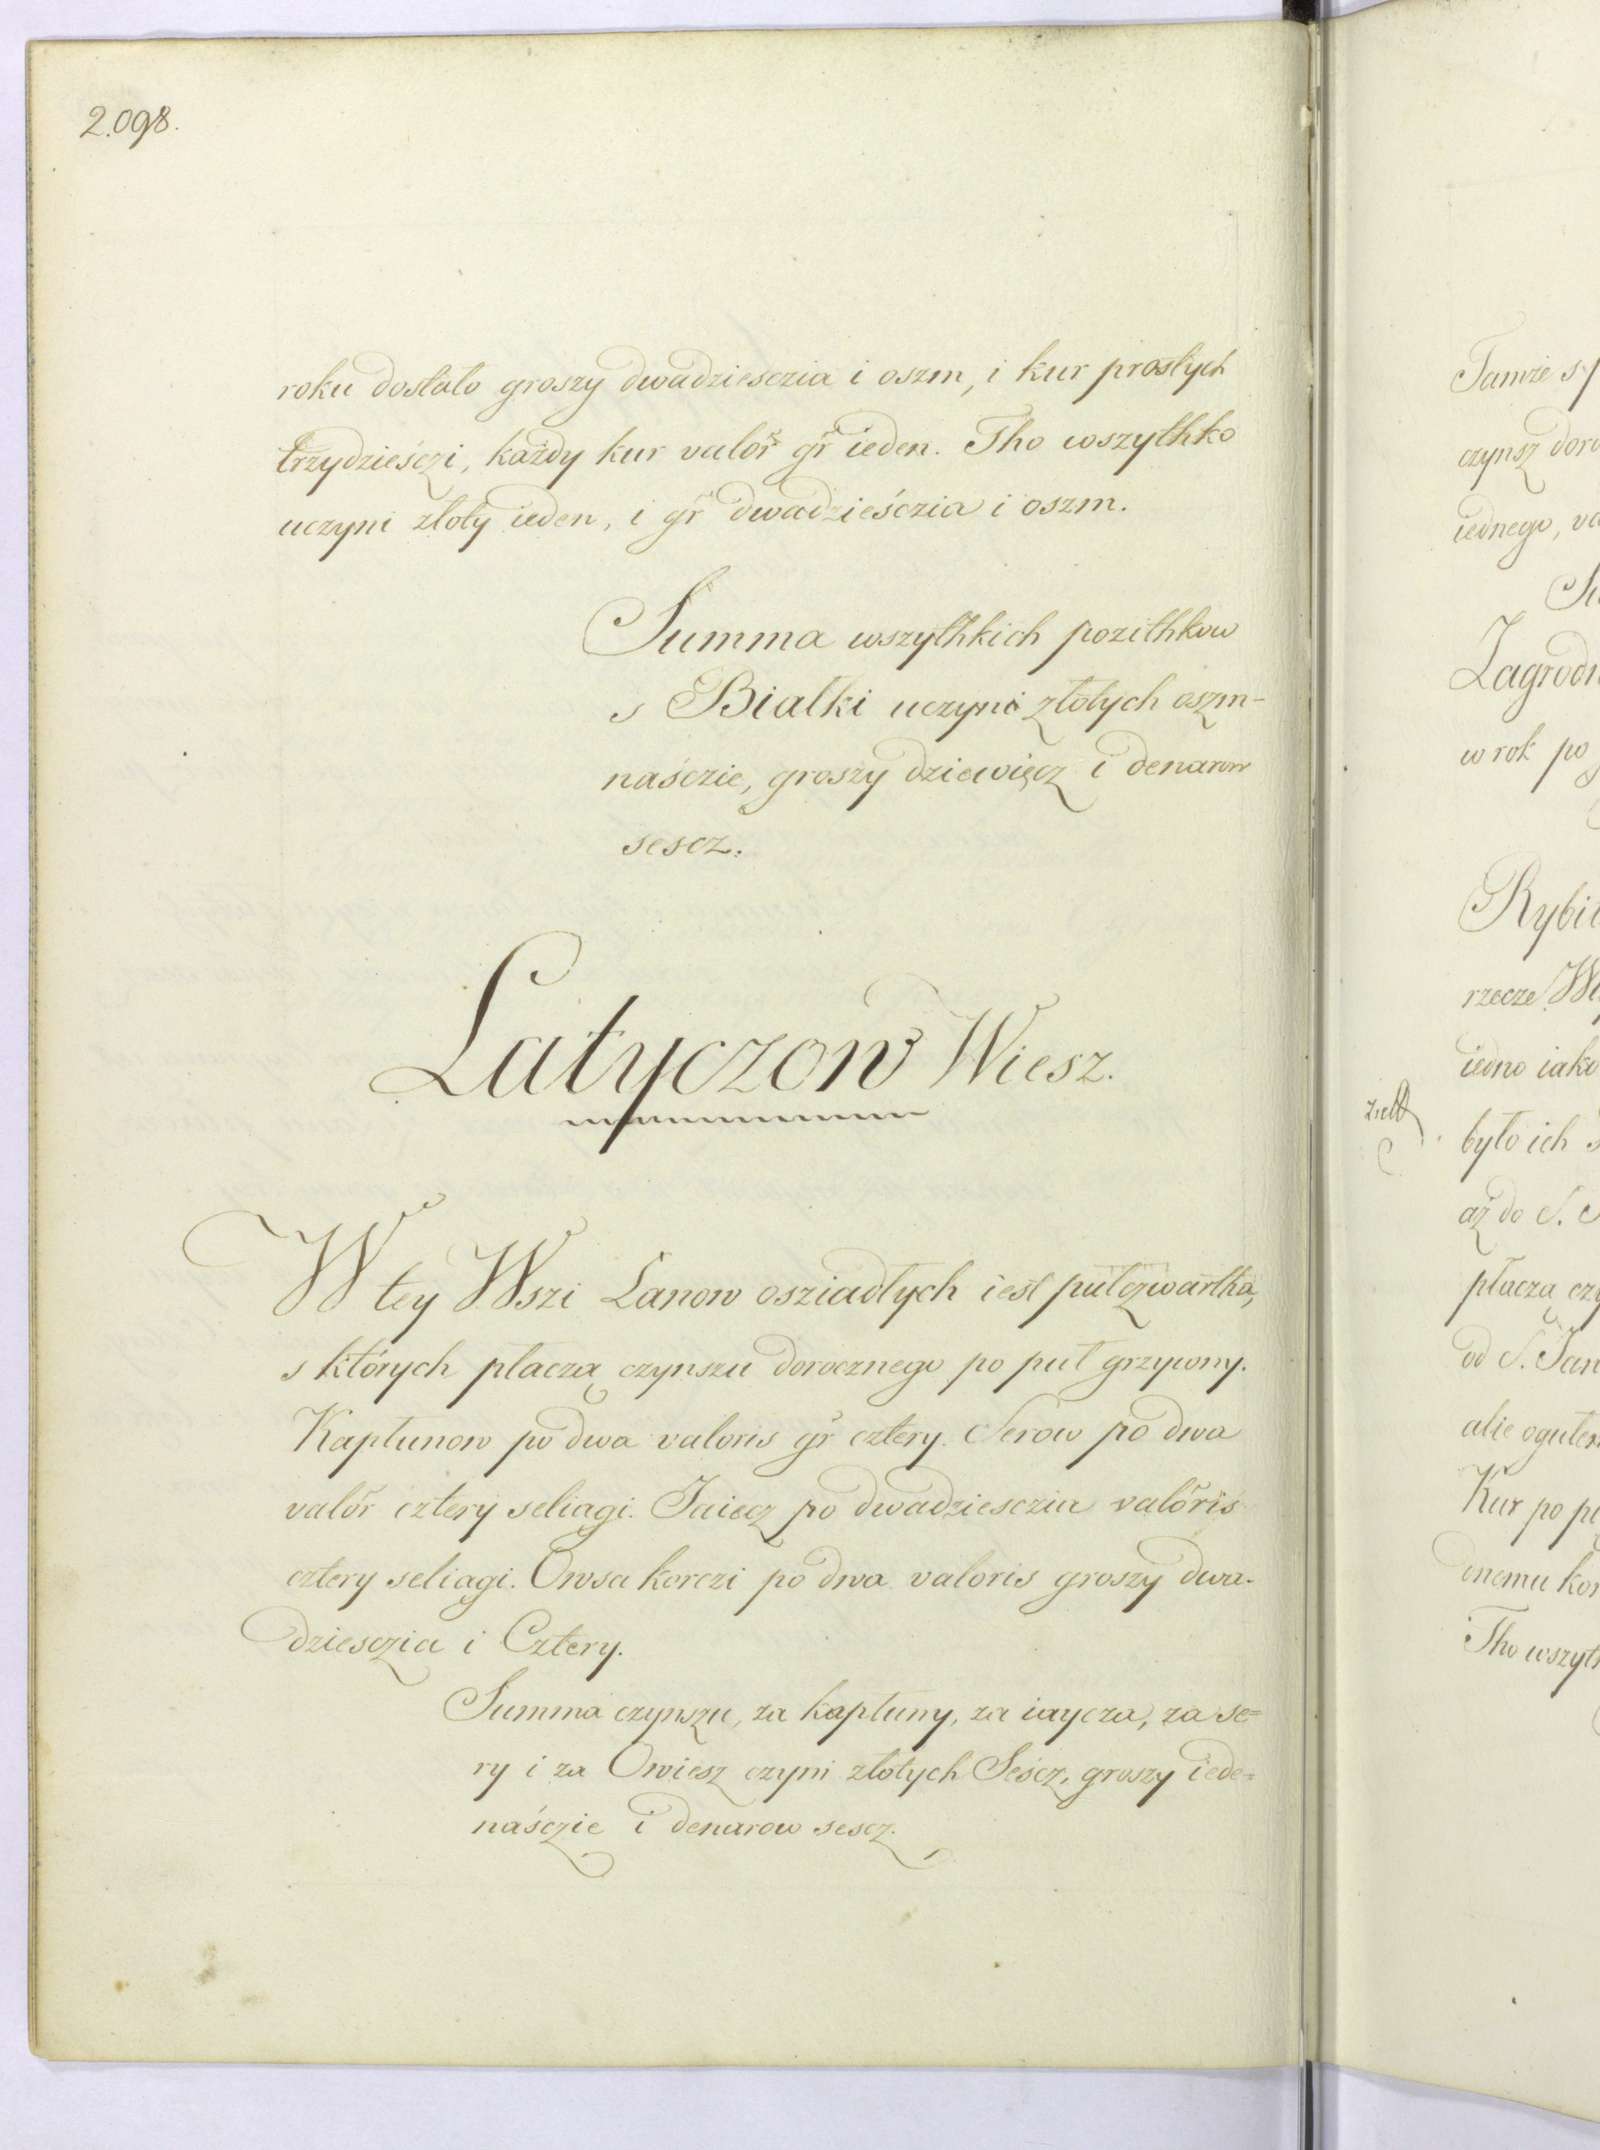 2.098.
roku dostało groszy dwadziesczia i oszm, i kur prostych
trzydzieśczi, każdy kur valor gr ieden. Tho wszythko
uczyni złoty ieden, i gr dwadzieśczia i oszm.
Summa wszythkich pozithkow
s Białki uczyni złotych oszm-
naśczie, groszy dziewięcz i denarow
sescz.
Latyczow Wiesz.
W tey Wszi Łanow osziadłych iest pułczwartha,
s których płaczą czynszu dorocznego po puł grzywny.
Kapłunow po dwa valoris gr cztery. Serow po dwa
valor cztery seliagi. Jaiecz po dwadziesczia valoris
cztery seliagi. Owsa korczi po dwa valoris groszy dwa-
dziesczia i Cztery.
Summa czynszu, za kapłuny, za iaycza, za se=
ry i za Owiesz czyni złotych Seścz, groszy iede=
naśczie i denarow sescz.
Tamże s
czynsz doro
iednego, va
Zagrodn
w rok po
Rybi
rzecze
iedno iako
było ich
aż do S.
płaczą czy
od S. Jan
alie ogułem
Kur po pi
dnemu kor
Tho wszyt